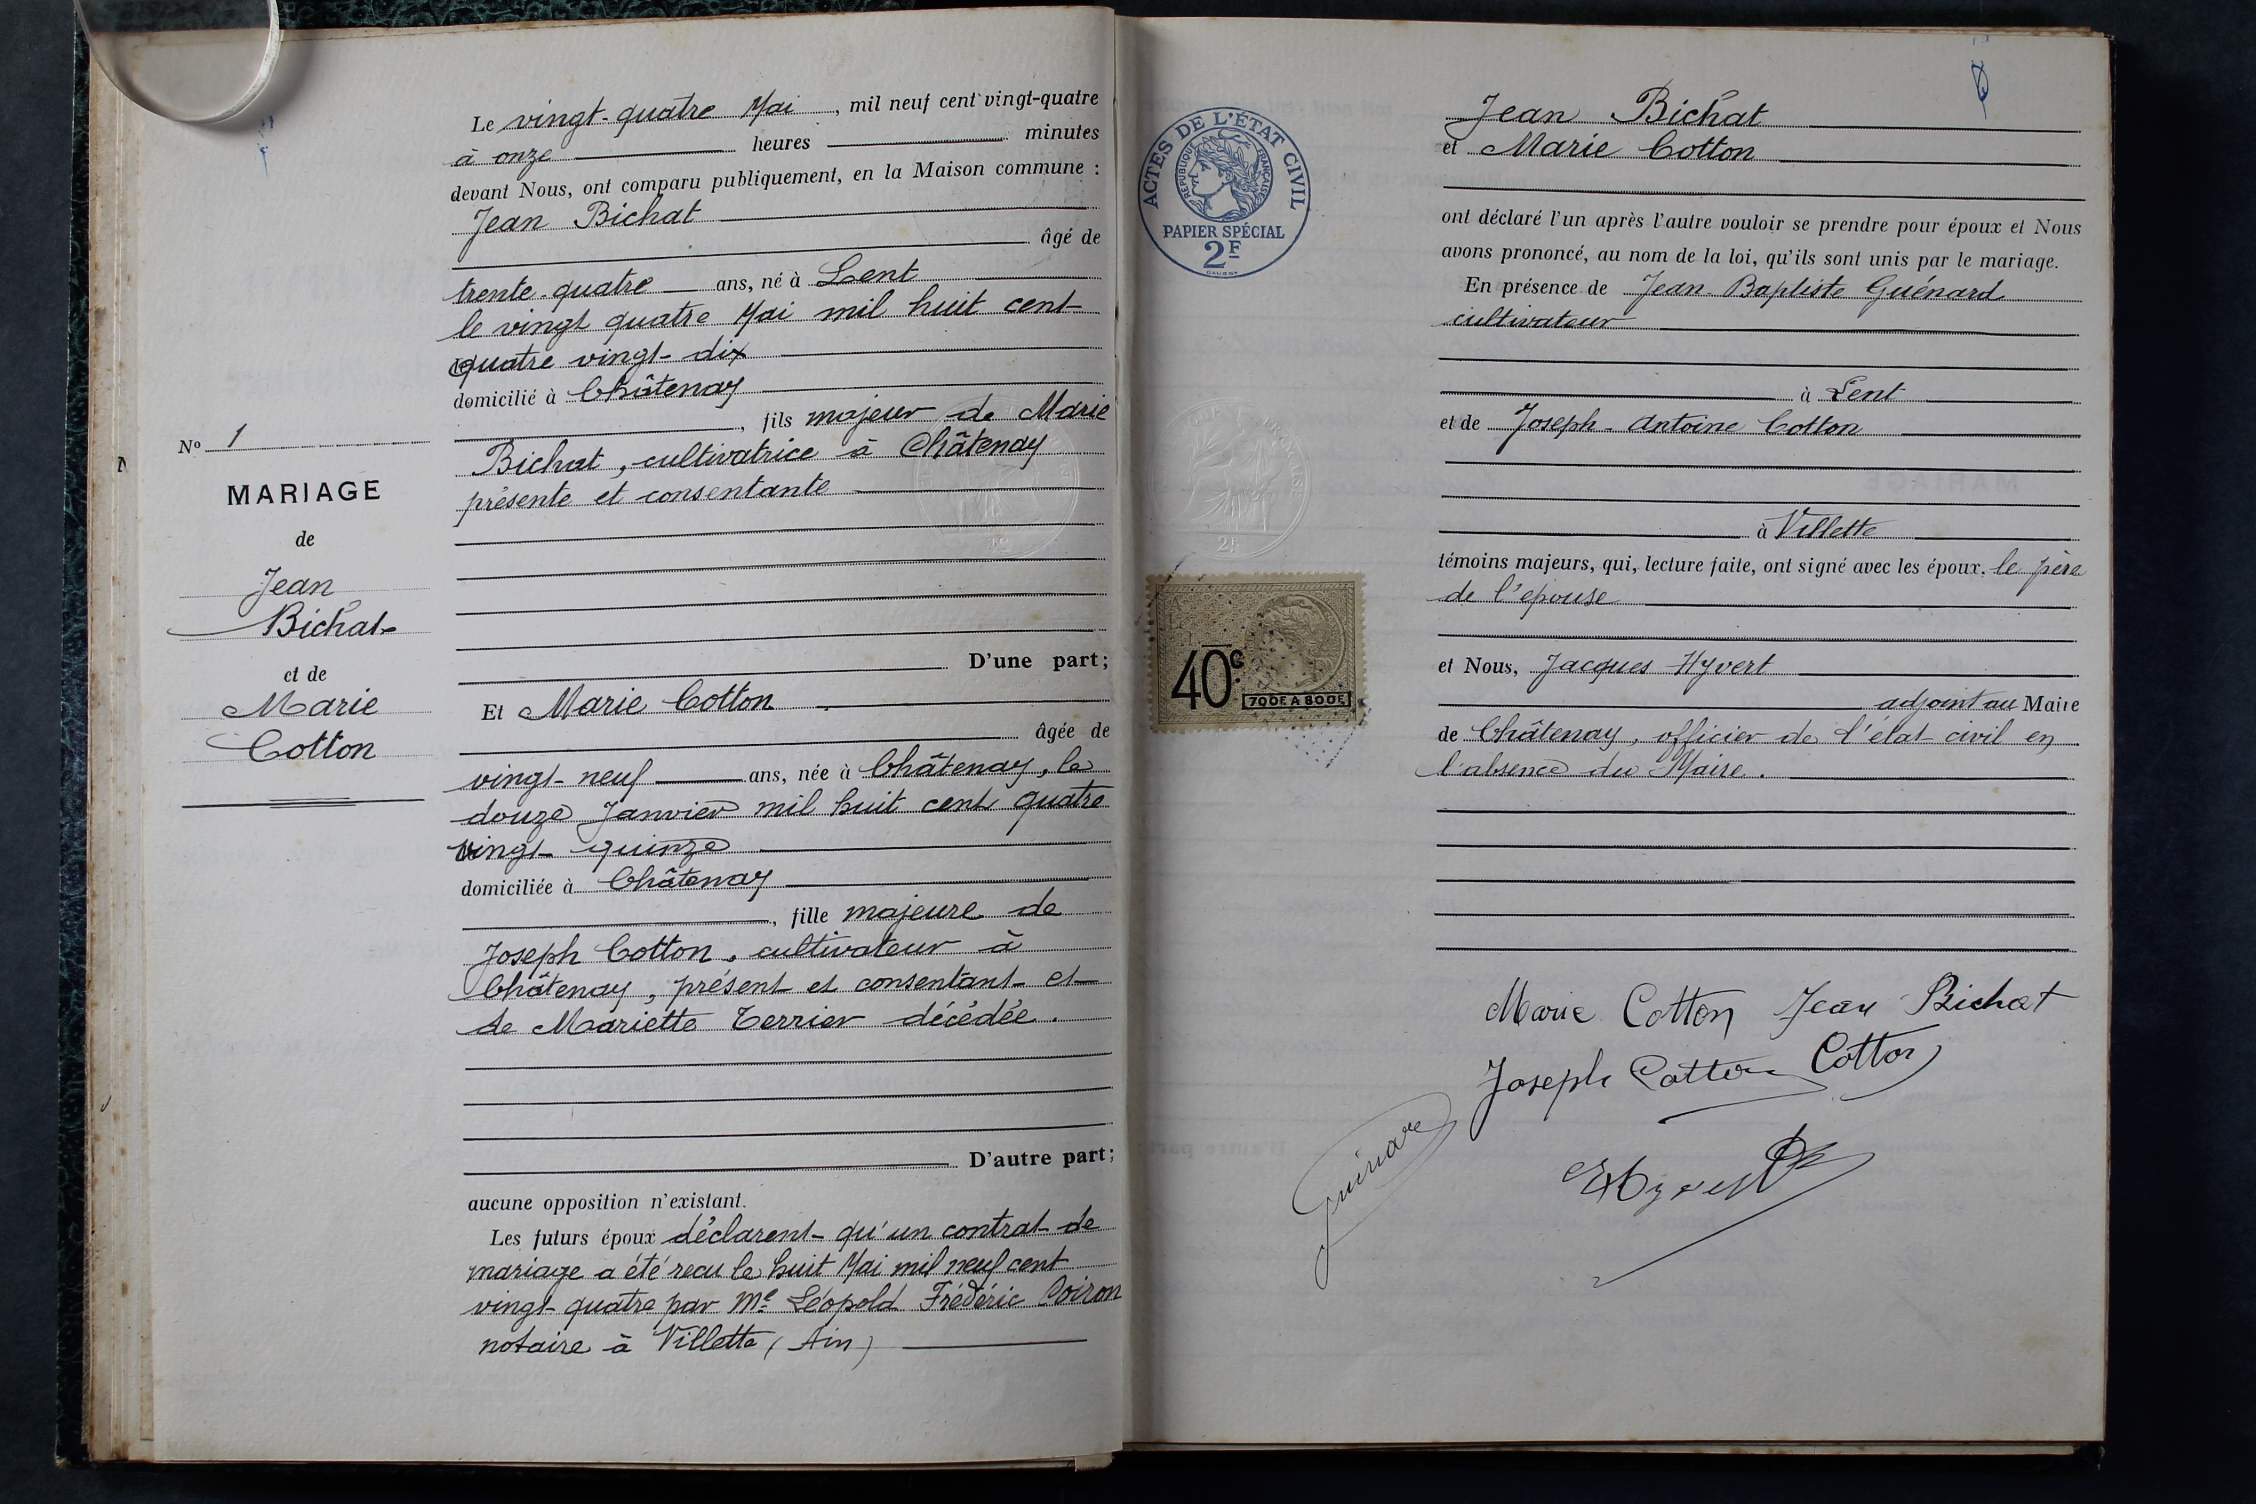 N° 1
MARIAGE
de
Jean
Bichat
et de
Marie
Cotton
Le vingt-quatre Mai, mil neuf cent vingt-quatre
à onze heures minutes
devant Nous, ont comparu publiquement, en la Maison commune :
Jean Bichat
âgé de
trente-quatre ans, né à Lent
le vingt quatre Mai mil huit cent
quatre vingt-dix
domicilié à Châtenay
, fils majeur de Marie
Bichat, cultivatrice à Châtenay
présente et consentante
D'une part;
Et Marie Cotton
âgée de
vingt-neuf ans, née à Châtenay, le
douze Janvier mil huit cent quatre
vingt-quinze
domiciliée à Châtenay
, fille majeure de
Joseph Cotton, cultivateur à
Châtenay, présent et consentant et
de Mariette Terrier décédée.
D'autre part;
aucune opposition n'existant.
Les futurs époux déclarent qu'un contrat de
mariage a été recu le huit Mai mil neuf cent
vingt-quatre par Me Léopold Frédéric Poiron
notaire à Villette (Ain)
ACTES DE L'ÉTAT CIVIL
RÉPUBLIQUE FRANÇAISE
PAPIER SPÉCIAL
2F
40c
700F A 800F
Jean Bichat
et Marie Cotton
ont déclaré l'un après l'autre vouloir se prendre pour époux et Nous
avons prononcé, au nom de la loi, qu'ils sont unis par le mariage.
En présence de Jean-Baptiste Guénard
cultivateur
à Lent
et de Joseph-Antoine Cotton
à Villette
témoins majeurs, qui, lecture faite, ont signé avec les époux, le père
de l'épouse
et Nous, Jacques Hyvert
adjoint au Maire
de Châtenay, officier de l'état civil en
l'absence du Maire.
Marie Cotton Jean Bichat
Joseph Cotton Cotton
Guénard
Hyvert